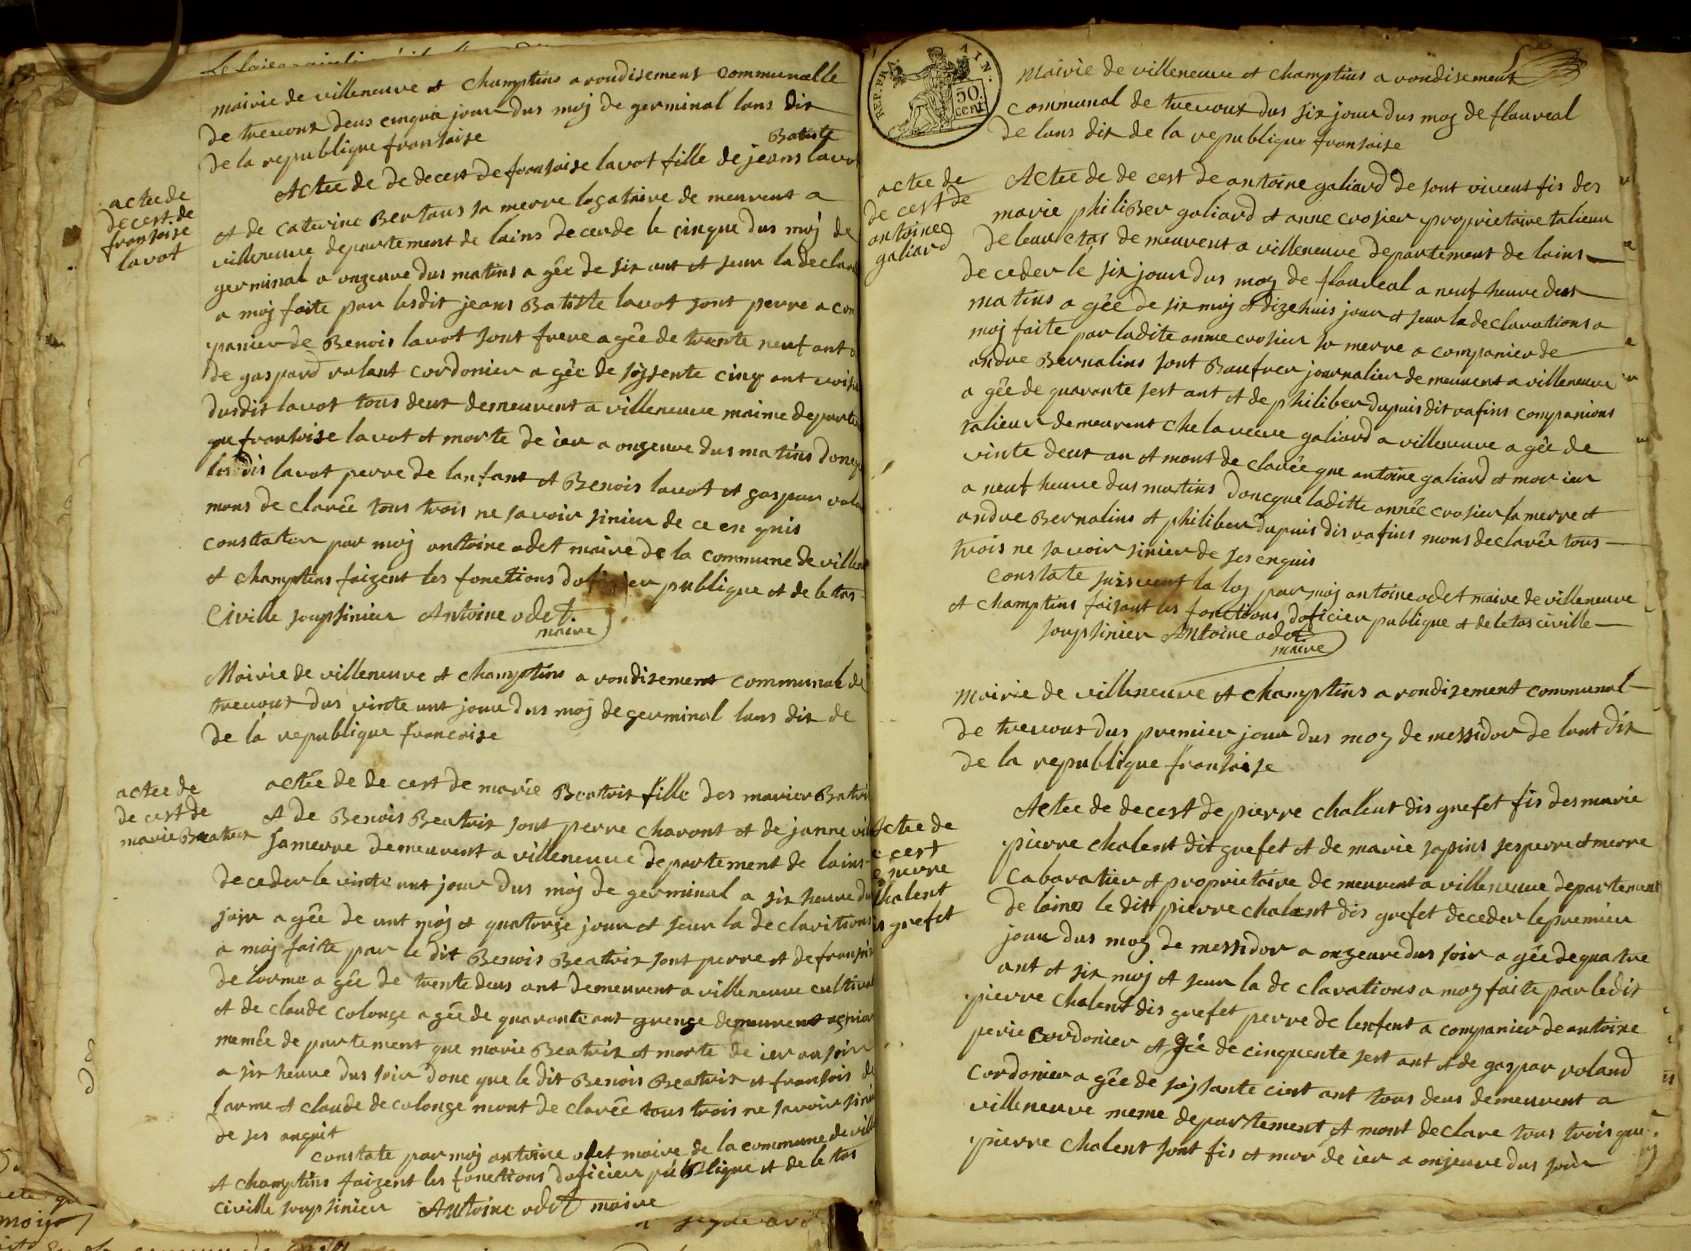 mairie de villeneuve et Champtins a rondisement Communalle
de trevoux deus cinque jour dus moj de germinal lans dix
de la republique fransaise
Actee de de decest de fransoise lavot fille de jeans Batiste lavot
actee de
decest de
fransoise
lavot
et de caterine Bertans sa merre logataire de meurent a
villeneuve departement de lains decerde le cinque dus moj de
germinal a onzeuve dus matins a gêe de six ant et seur la declara
a moj faite par lesdit jeans Batiste lavot sont perre a com
panier de Benois lavot sont frere a gêe de trente neuf ant
de gaspard rolant cordonier a gêe de soissente cinq ant voisin
dusdit lavot tous deux demeurent a villeneuve maime departe
que fransoise lavot et morte de ier a onzeuve dus matins donc
lesdis lavot perre de lanfant et Benois lavot et gaspar rola
mons de clarée tous trois ne savoir sinier de ce en quis
constater par moj antoine odet maire de la commune de villene
et champtins faizent les fonctions doficier publique et de letas
Civille soupsinier Antoine odet
maire
Mairie de villeneuve et champtins a rondizement communal de
trevoux dus vinte unt jour dus moj de germinal lans dix de
de la republique francoise
actee de
de cest de
marie Beatrix
actée de de cest de marie Beatrix fille des marier Batri
et de Benois Beatrix sont perre charont et de janne
sa merre demeurent a villeneuve departement de lains
deceder le vinte unt jour dus moj de germinal a six heure du
soir a gêe de unt moj et quatorze jour et seur la declarations
a moj faite par le dit Benois Beatrix sont perre et de fransois
de larme a gêe de trente deus ant demeurent a villeneuve cultiva
et de claude colonge a gêe de quarante ant grenge demeurent
memée de partement que marie Beatrix et morte de ier au soir
a six heure dus soir donc que le dit Benois Beatrix et fransois de
larme et claude decolonge mont de clarée tous trois ne savoir sini
de ses anquit
constate par moj antoine odet maire de la commune de ville
et champtins faizent les fonctions doficier publique et de letas
civille soupsinier Antoine odet maire
REP. FRA.
AIN.
50.
cent
Mairie de villeneuve et champtins a rondisement
communal de trevoux dus six jour dus moy de flaureal
de lans dix de la republique fransaise
actee de
de cest de
antoine
galiard
Actee de de cest de antoine galiard de sont vivent fis des
marie philiBer galiard et anne crosier proprietaire talieur
de leur etas de meurent a villeneuve departement de lains
deceder le six jour dus moy de flaureal a neuf heure dus
matins a gêe de six moj et dizehuis jour et seur la declarations a
moj faite par ladite anne crosier sa merre a companier de
andre Bernalins sont Baufrer journalier demeurent a villeneuve
a gêe de quarante sest ant et de philiber dupuis dit rafins companions
talieur demeurent che la veuve galiard a villeneuve a gêe de
vinte deux an et mont de clarée que antoine galiard et mor ier
a neuf heure dus matins doncque laditte année crosier sa merre et
andre Bernalins et philiber dupuis dis rafins mons declarée tous
trois ne savoir sinier de ses enquis
constate suisvent la loy par moj antoine odet maire de villeneuve
et champtins faisant les fonctions doficier publique et de letas civille
soupsinier Antoine odet
maire
Mairie de villeneuve et champtins a rondizement communal
de trevoux dus premier jour dus moy de messidor de lant dix
de la republique fransoise
Actee de
cest
pierre
chalent
dis grefet
Actee de decest de pierre chalent dis grefet fis des marie
pierre chalent dit grefet et de marie sapins ses perre et merre
cabaratier et proprietaire demeurent a villeneuve departement
de laines le ditt pierre chalent dis grefet deceder le premier
jour dus moy de messidor a onzeure dus soir a gêe de quatre
ant et six moj et seur la de clarations a moy faite par ledit
pierre chalent dis grefet perre de lenfent a companier de antoine
perie cordonier et gêe de cinquente sest ant et de gaspar roland
cordonier a gêe de soissante cint ant tous deus demeurent a
villeneuve meme departement et mont declare tous trois que
pierre chalent sont fis et mor de ier a onzeure dus soir